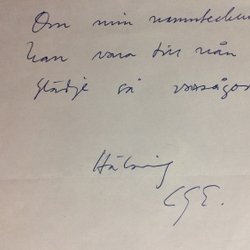 Om min namntecknin
kan vara till nån
glädje så varsågod
Hälsning
LGE.